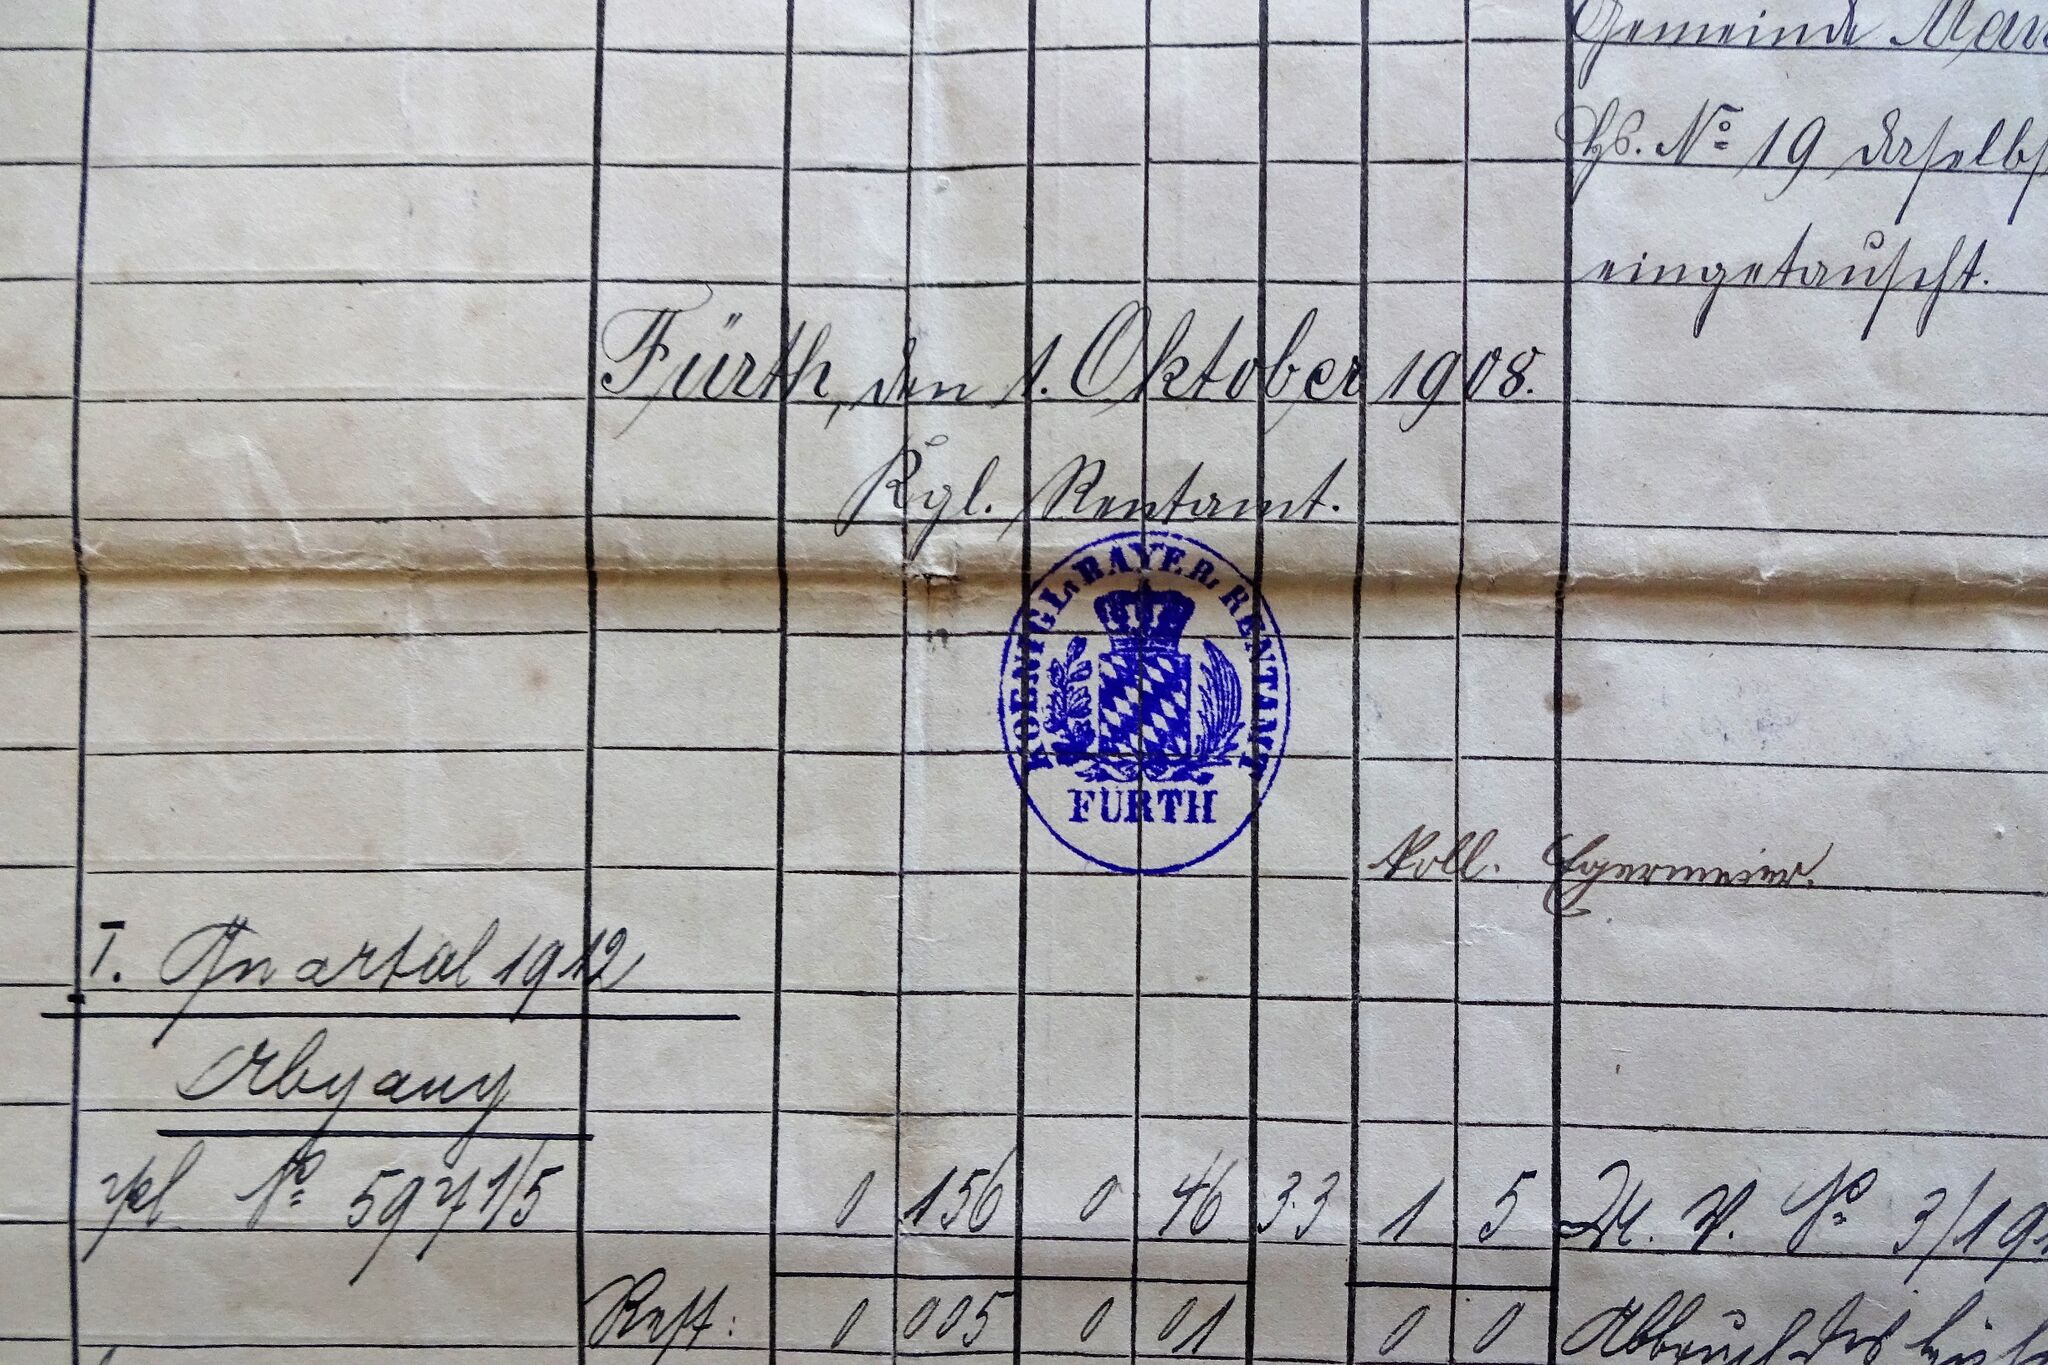 Gemeinde
Hs. No 19 daselbst
eingetauscht.
Fürth, den 1. Oktober 1908.
Kgl. Rentamt.
KOENIGL. BAYER. RENTAMT
FÜRTH
Egermeier.
I. Quartal 1912
Abgang
Pl No 597 1/5 0 156 0 46 3.3 1 5 No 3/191
Rest: 0 005 0 01 0 0 Abbruch des